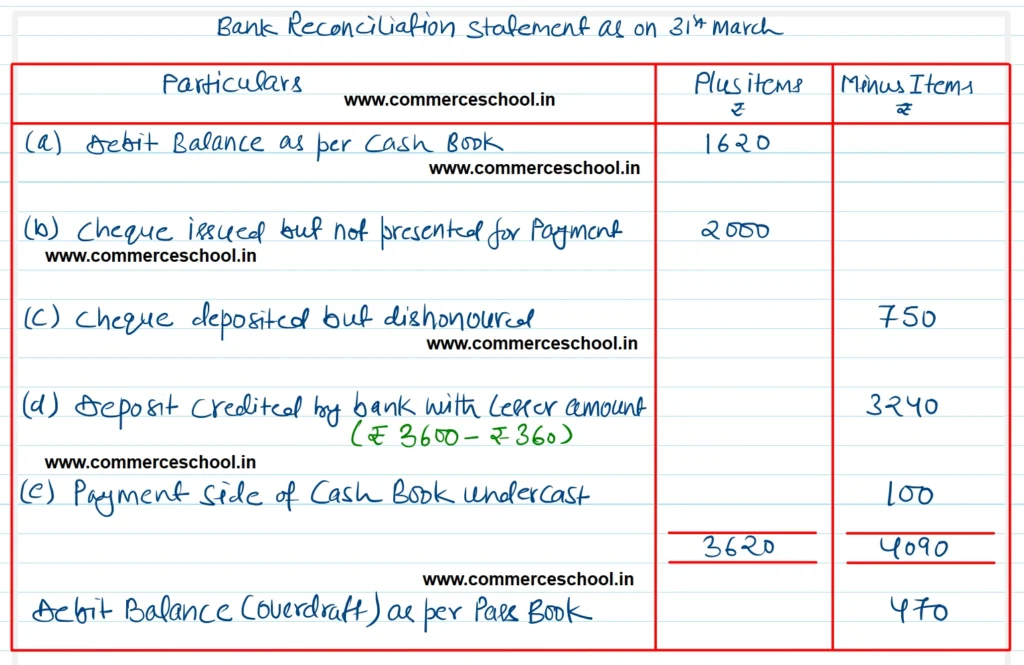 Bank Reconciliation Statement as on 31st March
Particulars Plus items Minus Items
www.commerceschool.in ₹ ₹
(a) Debit Balance as per Cash Book 1620
www.commerceschool.in
(b) Cheque issued but not presented for Payment 2000
www.commerceschool.in
(c) Cheque deposited but dishonoured 750
www.commerceschool.in
(d) Deposit credited by bank with lesser amount 3240
(₹ 3600 - ₹ 360)
www.commerceschool.in
(e) Payment side of Cash Book undercast 100
3620 4090
www.commerceschool.in
Debit Balance (overdraft) as per Pass Book 470